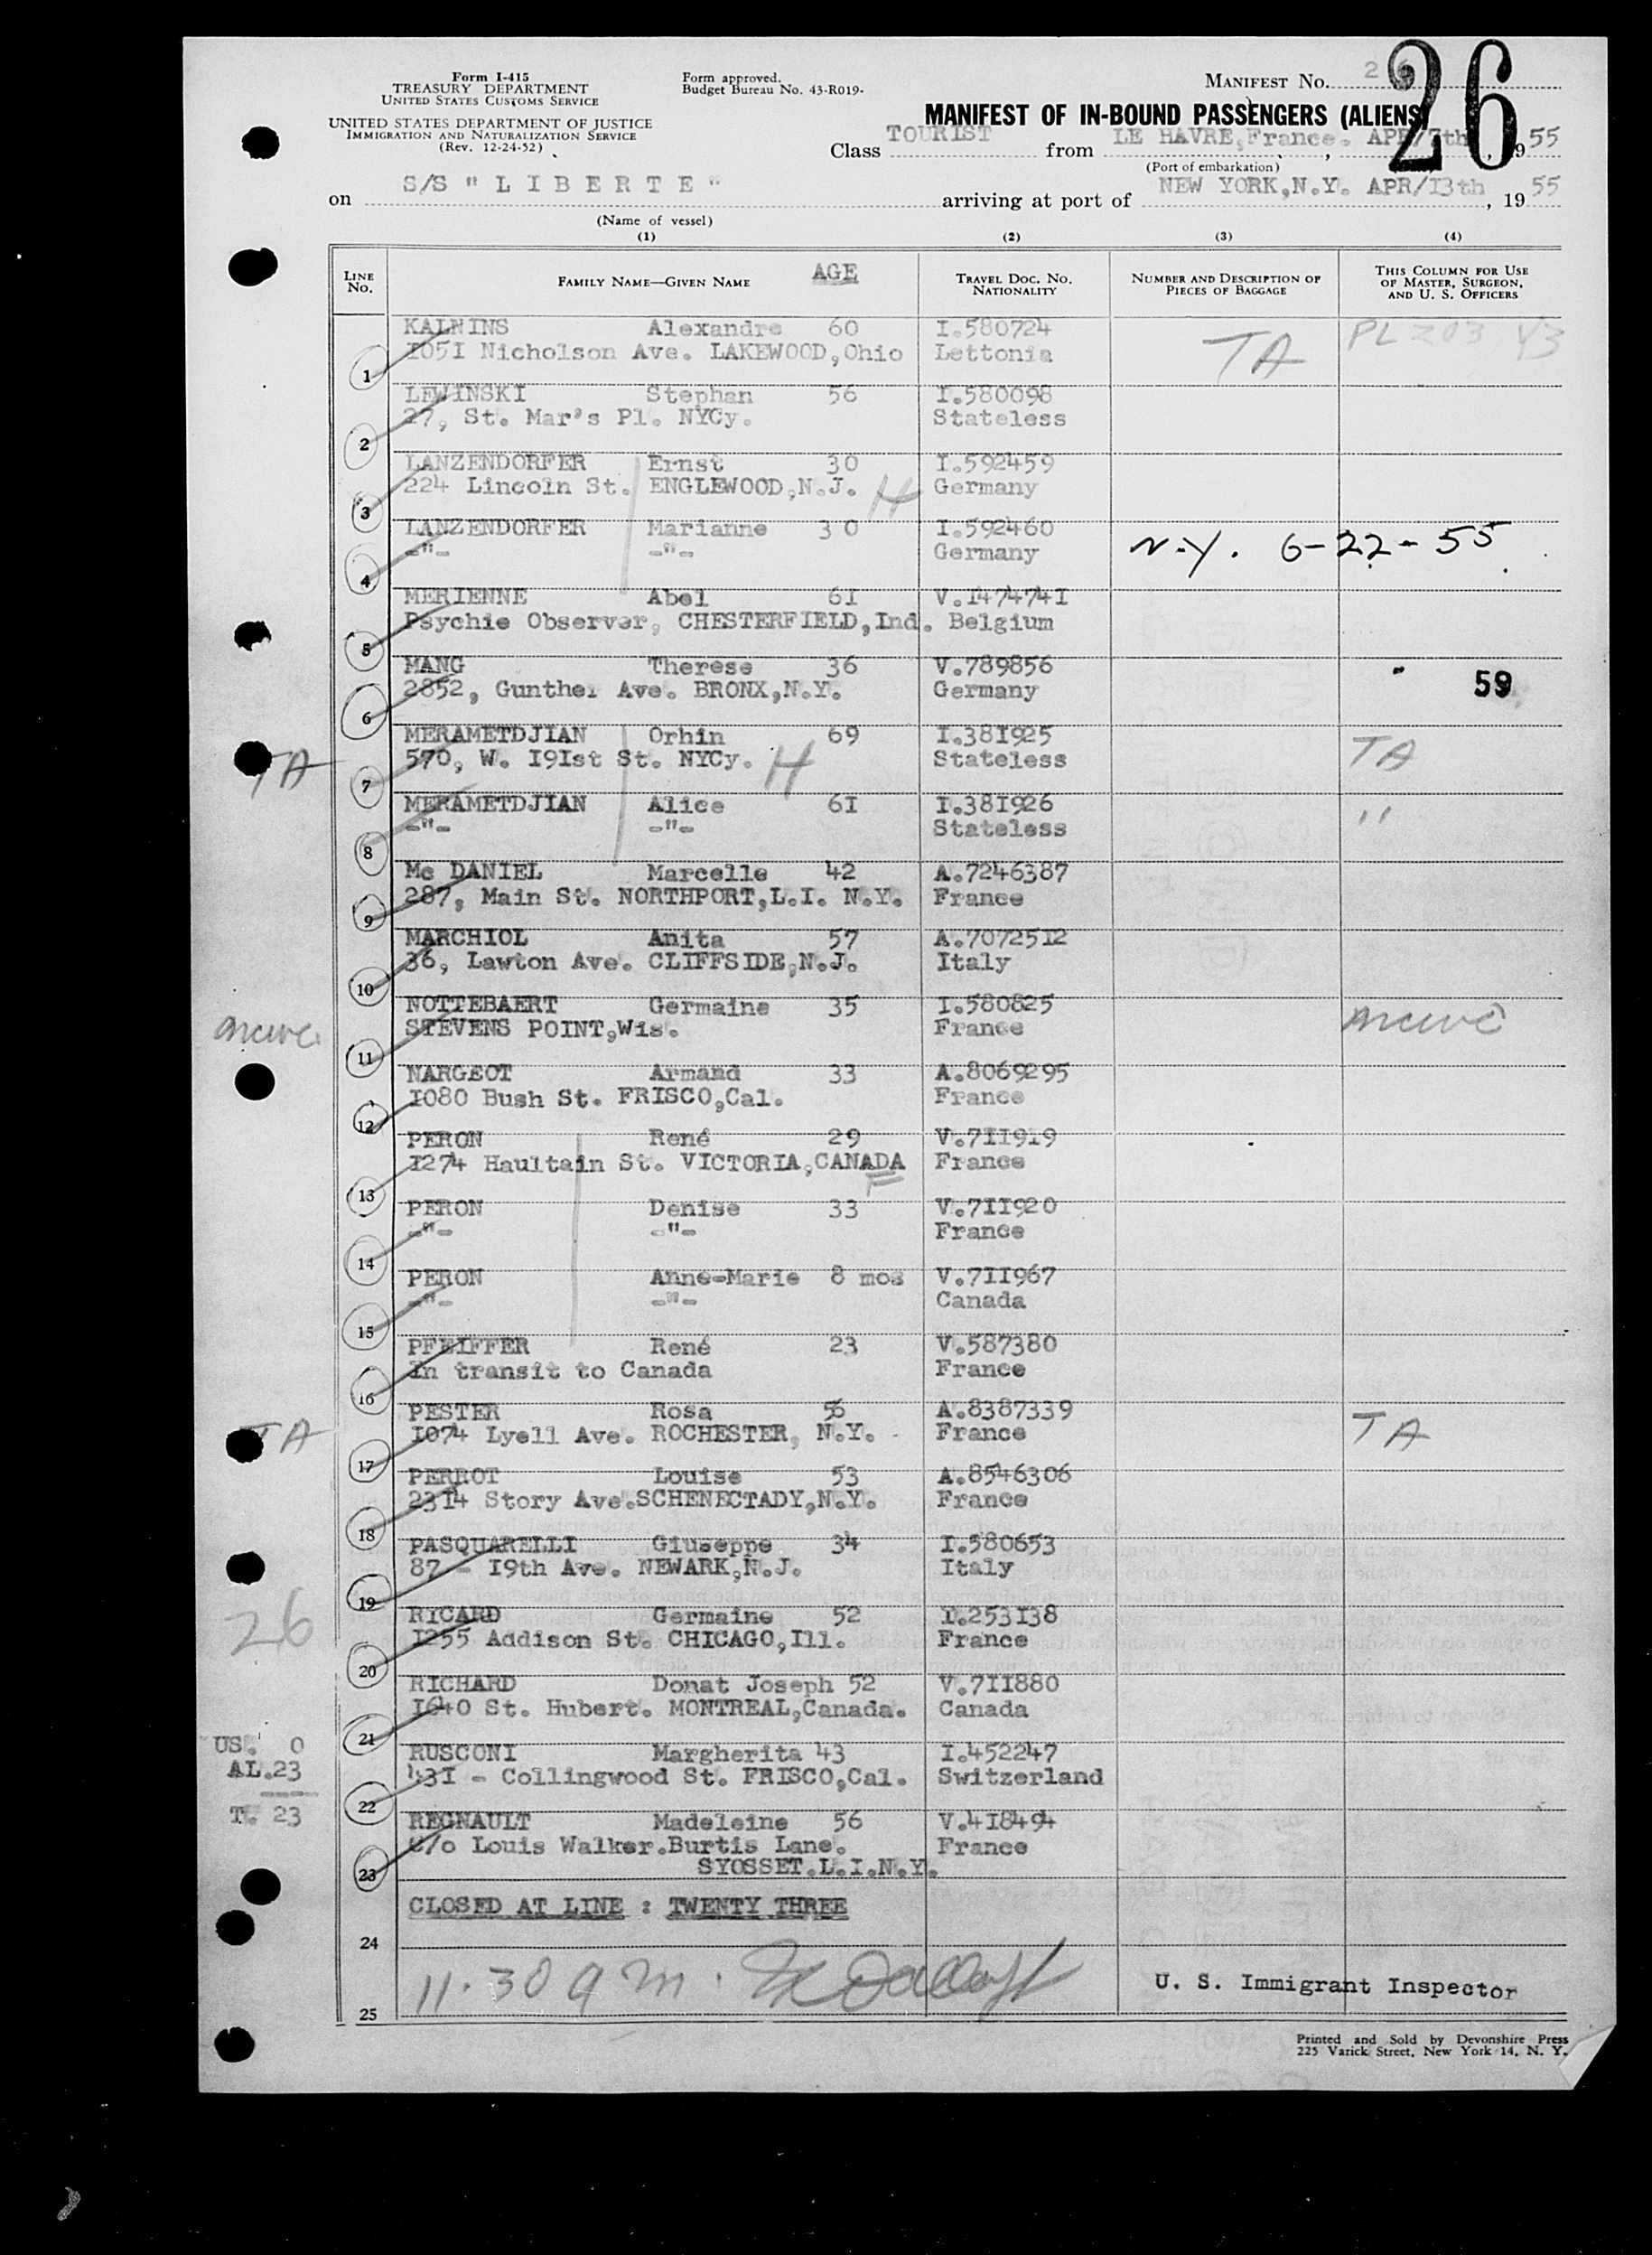 Form I-415
TREASURY DEPARTMENT
UNITED STATES CUSTOMS SERVICE
UNITED STATES DEPARTMENT OF JUSTICE
IMMIGRATION AND NATURALIZATION SERVICE
(Rev. 12-24-52)
Form approved.
Budget Bureau No. 43-R019-
MANIFEST No. 26
26
MANIFEST OF IN-BOUND PASSENGERS (ALIENS)
Class TOURIST from LE HAVRE,France. APR/7th, 1955
(Port of embarkation)
on S/S " L I B E R T E " arriving at port of NEW YORK,N.Y. APR/I3th, 1955
(Name of vessel)
(1) (2) (3) (4)
LINE No. FAMILY NAME—GIVEN NAME AGE TRAVEL DOC. No. NATIONALITY NUMBER AND DESCRIPTION OF PIECES OF BAGGAGE THIS COLUMN FOR USE OF MASTER, SURGEON, AND U. S. OFFICERS
KALNINS Alexandre 60 I.580724 TA PL 203 43
1 I05I Nicholson Ave. LAKEWOOD,Ohio Lettonia
LEWINSKI Stephan 56 I.580098
2 27, St. Mar's Pl. NYCy. Stateless
LANZENDORFER Ernst 30 I.592459
3 224 Lincoln St. ENGLEWOOD,N.J. H Germany
LANZENDORFER Marianne 30 I.592460
4 -"- -"- Germany N.Y. 6-22-55
MERIENNE Abel 6I V.I47474I
5 Psychie Observer, CHESTERFIELD,Ind. Belgium
MANG Therese 36 V.789856
6 2852, Gunther Ave. BRONX,N.Y. Germany 59
MERAMETDJIAN Orhin 69 I.38I925
TA 7 570, W. I9Ist St. NYCy. H Stateless TA
MERAMETDJIAN Alice 6I I.38I926
8 -"- -"- Stateless "
Mc DANIEL Marcelle 42 A.7246387
9 287, Main St. NORTHPORT,L.I. N.Y. France
MARCHIOL Anita 57 A.70725I2
10 36, Lawton Ave. CLIFFSIDE,N.J. Italy
NOTTEBAERT Germaine 35 I.580825
11 STEVENS POINT,Wis. France
NARGEOT Armand 33 A.8069295
12 I080 Bush St. FRISCO,Cal. France
PERON René 29 V.7II9I9
13 I274 Haultain St. VICTORIA,CANADA France
PERON Denise 33 V.7II920
14 -"- -"- France
PERON Anne-Marie 8 mos V.7II967
15 -"- -"- Canada
PFEIFFER René 23 V.587380
16 In transit to Canada France
PESTER Rosa 56 A.8387339
TA 17 I074 Lyell Ave. ROCHESTER, N.Y. France TA
PERROT Louise 53 A.8546306
18 23I4 Story Ave.SCHENECTADY,N.Y. France
PASQUARELLI Giuseppe 34 I.580653
19 87 - I9th Ave. NEWARK,N.J. Italy
26
RICARD Germaine 52 I.253I38
20 I255 Addison St. CHICAGO,Ill. France
RICHARD Donat Joseph 52 V.7II880
21 I640 St. Hubert. MONTREAL,Canada. Canada
US. 0
AL.23
T. 23
RUSCONI Margherita 43 I.452247
22 43I - Collingwood St. FRISCO,Cal. Switzerland
REGNAULT Madeleine 56 V.4I8494
23 C/o Louis Walker.Burtis Lane. France
SYOSSET.L.I.N.Y.
CLOSED AT LINE : TWENTY THREE
24
11.30 a m.
U. S. Immigrant Inspector
25
Printed and Sold by Devonshire Press
225 Varick Street, New York 14, N. Y.